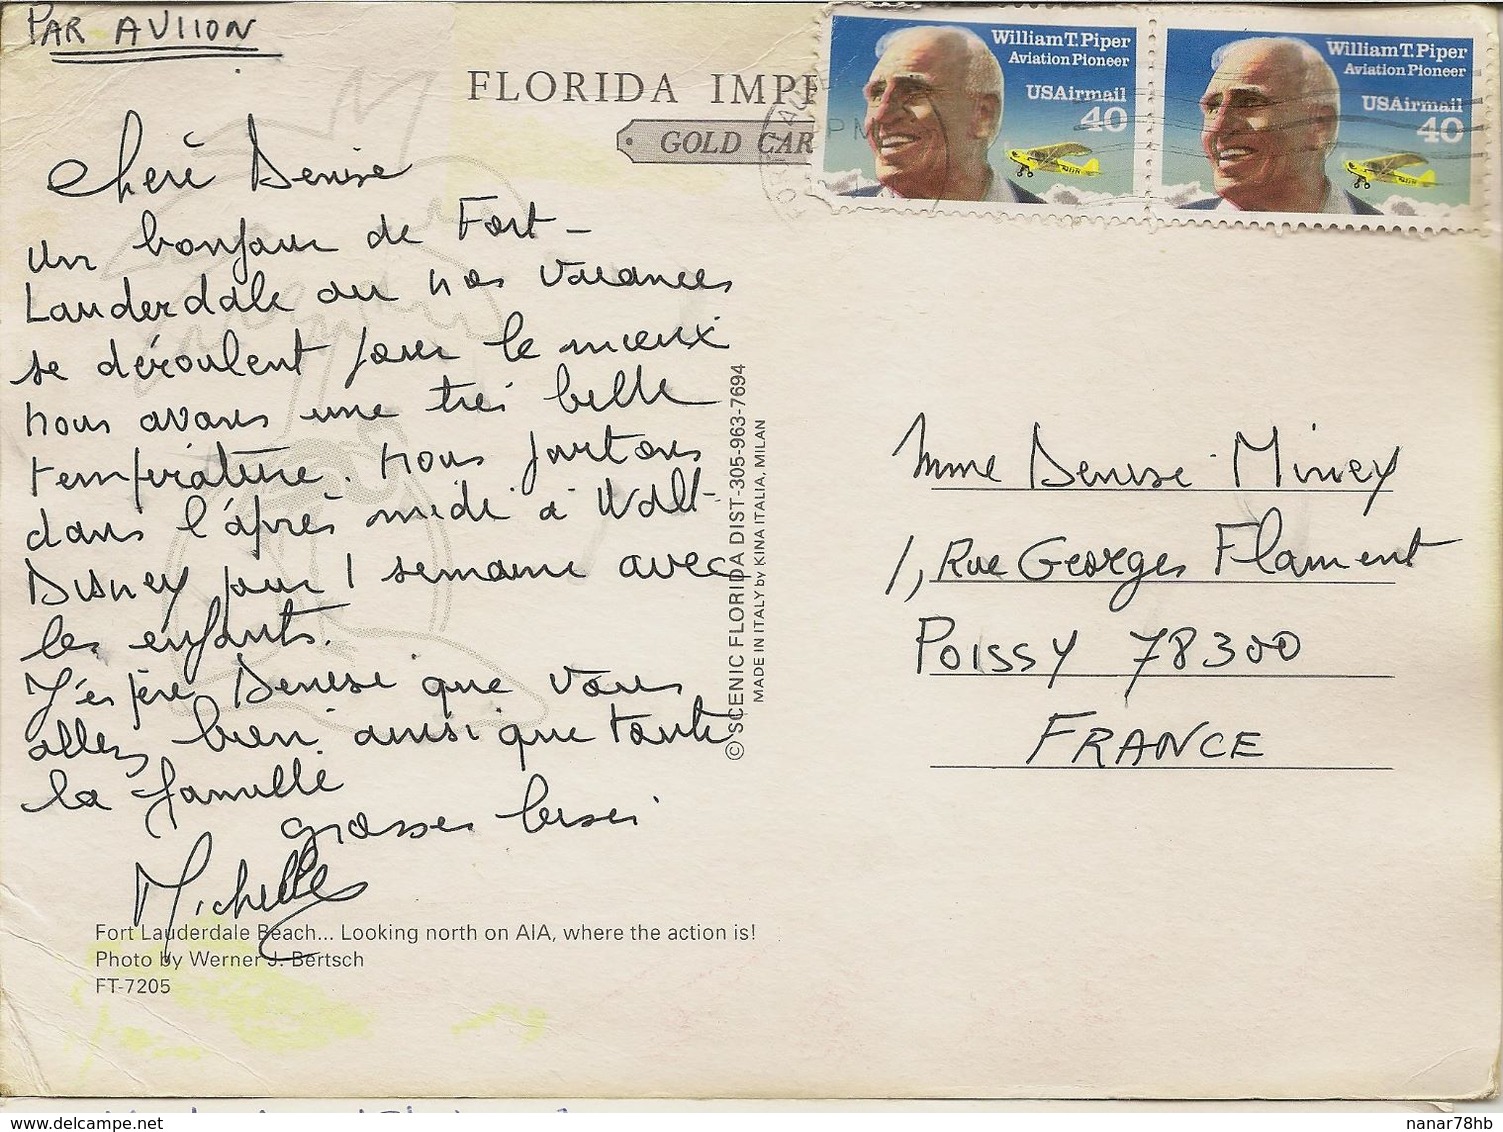 PAR AVIION
FLORIDA IMPR
GOLD CAR
William T. Piper
Aviation Pioneer
USAirmail
40
William T. Piper
Aviation Pioneer
USAirmail
40
PM
Chère Denise
un bonjour de Fort-
Lauderdale ou nos vacances
se déroulent pour le mieux
nous avons une très belle
température. nous partons
dans l'après midi à Walt-
DISNEY pour 1 semaine avec
les enfants.
J'espère Denise que vous
allez bien ainsi que toute
la famille
grosses bises
Michelle
Fort Lauderdale Beach... Looking north on AIA, where the action is!
Photo by Werner J. Bertsch
FT-7205
© SCENIC FLORIDA DIST-305-963-7694
MADE IN ITALY by KINA ITALIA, MILAN
Mme Denise Mivey
1, Rue Georges Flament
POISSY 78300
FRANCE
www.delcampe.net
nanar78hb